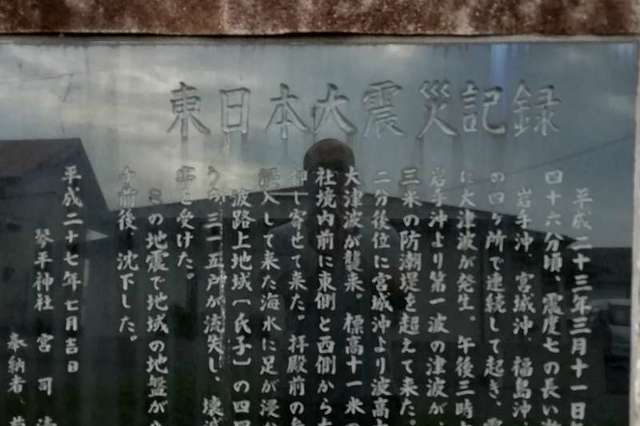 東日本大震災記録
平成二十三年三月十一日
四十六分頃、震度七の長い
岩手沖、宮城沖、福島沖、
の四ヶ所で連続して起き、
に大津波が発生。午後三時
岩手沖より第一波の津波が、
三米の防潮堤を超えて来た。
二分後位に宮城沖より波高
大津波が襲来。標高十一米
社境内前に東側と西側から
押し寄せて来た。拝殿前の
浸入して来た海水に足が浸
波路上地域（氏子）の四
三一五所が流失し、壊
害を受けた。
この地震で地域の地盤が
前後、沈下した。
平成二十七年七月吉日
琴平神社 宮司
奉納者、